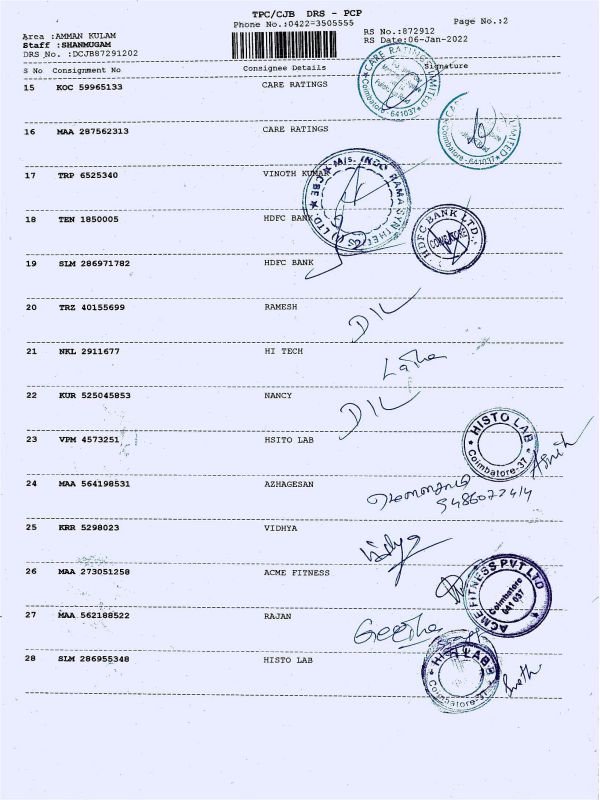 TPC/CJB DRS - PCP
Phone No.:0422-3505555
Page No.:2
Area :AMMAN KULAM
RS No.:872912
Staff :SHANMUGAM
RS Date:06-Jan-2022
DRS No. :DCJB87291202
S No Consignment No Consignee Details Signature
15 KOC 59965133 CARE RATINGS
CARE RATINGS LIMITED
Coimbatore-641037
16 MAA 287562313 CARE RATINGS
Coimbatore-641037
17 TRP 6525340 VINOTH KUMAR
18 TEN 1850005 HDFC BANK
HDFC BANK LTD.
19 SLM 286971782 HDFC BANK
20 TRZ 40155699 RAMESH
21 NKL 2911677 HI TECH
Latha
22 KUR 525045853 NANCY
23 VPM 4573251 HSITO LAB
HISTO LAB
Coimbatore-37
24 MAA 564198531 AZHAGESAN
25 KRR 5298023 VIDHYA
Vidhya
26 MAA 273051258 ACME FITNESS
ACME FITNESS PVT LTD
Coimbatore
641 037
27 MAA 562188522 RAJAN
Geetha
28 SLM 286955348 HISTO LAB
Coimbatore-37